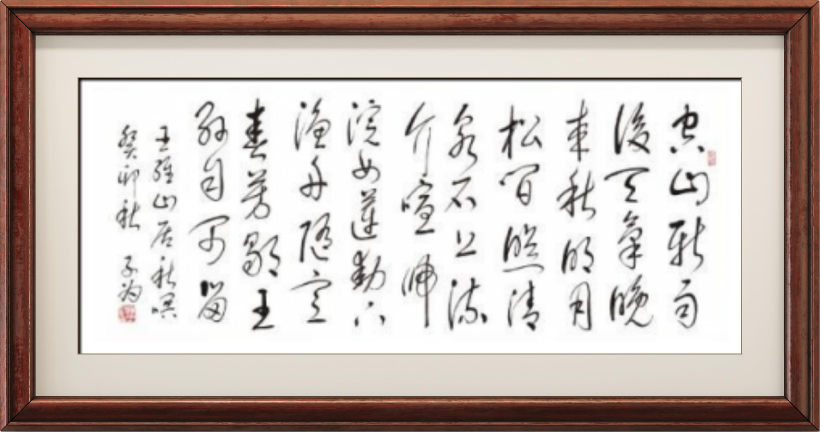 空山新雨
後天氣晚
來秋明月
松間照清
泉石上流
竹喧歸
浣女蓮動下
漁舟隨意
春芳歇王
孫自可留
王維山居秋暝
癸卯秋 子为